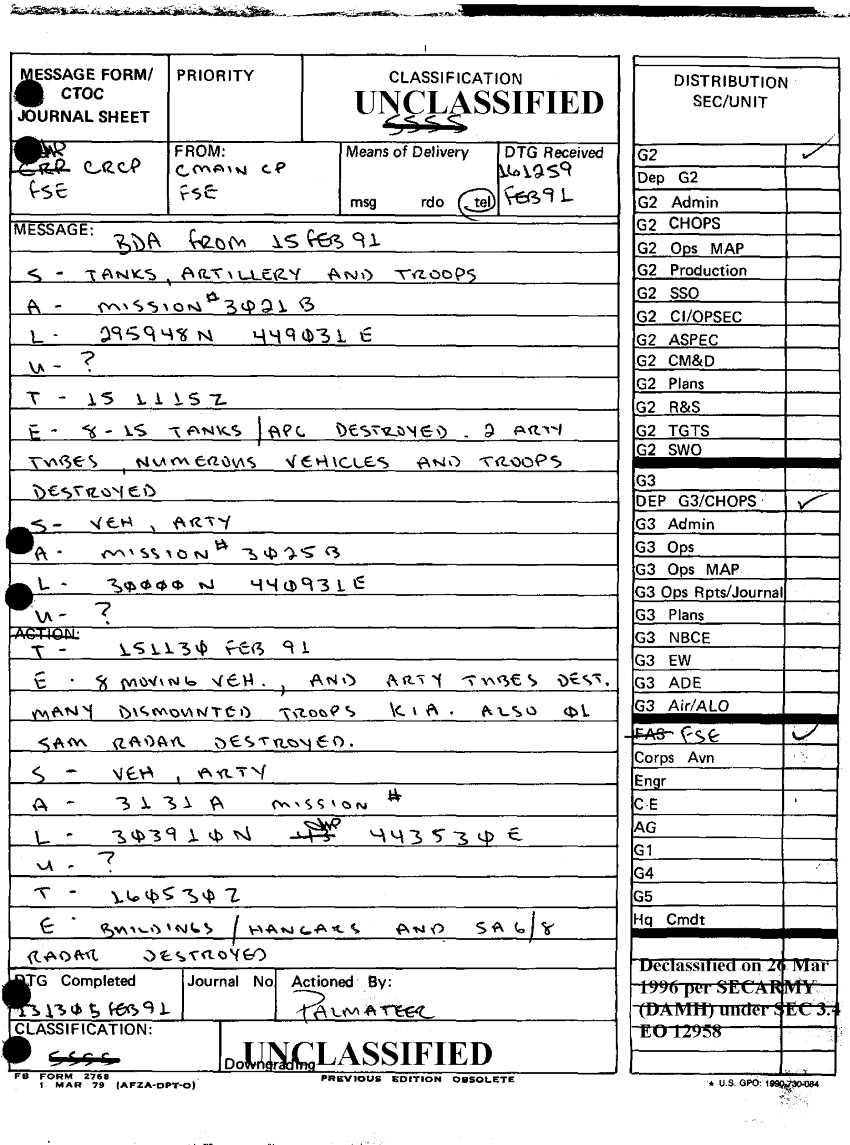 MESSAGE FORM/
CTOC
JOURNAL SHEET
PRIORITY
CLASSIFICATION
UNCLASSIFIED
SSSS
CRCP
FSE
FROM:
CMAIN CP
FSE
Means of Delivery
msg rdo tel
DTG Received
161259
FEB91
MESSAGE:
BDA FROM 15 FEB 91
S - TANKS, ARTILLERY AND TROOPS
A - MISSION # 3021B
L - 295948N 449031E
U - ?
T - 15 1115Z
E - 8-15 TANKS/APC DESTROYED. 2 ARTY
TUBES, NUMEROUS VEHICLES AND TROOPS
DESTROYED
S - VEH, ARTY
A - MISSION # 3025B
L - 30000N 440931E
U - ?
ACTION:
T - 151130 FEB 91
E - 8 MOVING VEH., AND ARTY TUBES DEST.
MANY DISMOUNTED TROOPS KIA. ALSO 01
SAM RADAR DESTROYED.
S - VEH, ARTY
A - 3131A MISSION #
L - 303910N 43 443530E
U - ?
T - 160530Z
E - BUILDINGS/HANGARS AND SA6/8
RADAR DESTROYED
DTG Completed
131305 FEB91
Journal No
Actioned By:
PALMATEER
CLASSIFICATION:
SSSS
UNCLASSIFIED
Downgrading
FB FORM 2768
1 MAR 79 (AFZA-DPT-O)
PREVIOUS EDITION OBSOLETE
DISTRIBUTION
SEC/UNIT
G2 ✓
Dep G2
G2 Admin
G2 CHOPS
G2 Ops MAP
G2 Production
G2 SSO
G2 CI/OPSEC
G2 ASPEC
G2 CM&D
G2 Plans
G2 R&S
G2 TGTS
G2 SWO
G3
DEP G3/CHOPS ✓
G3 Admin
G3 Ops
G3 Ops MAP
G3 Ops Rpts/Journal
G3 Plans
G3 NBCE
G3 EW
G3 ADE
G3 Air/ALO
FAS FSE ✓
Corps Avn
Engr
C-E
AG
G1
G4
G5
Hq Cmdt
Declassified on 26 Mar
1996 per SECARMY
(DAMH) under SEC 3.4
EO 12958
★ U.S. GPO: 1990-730-084